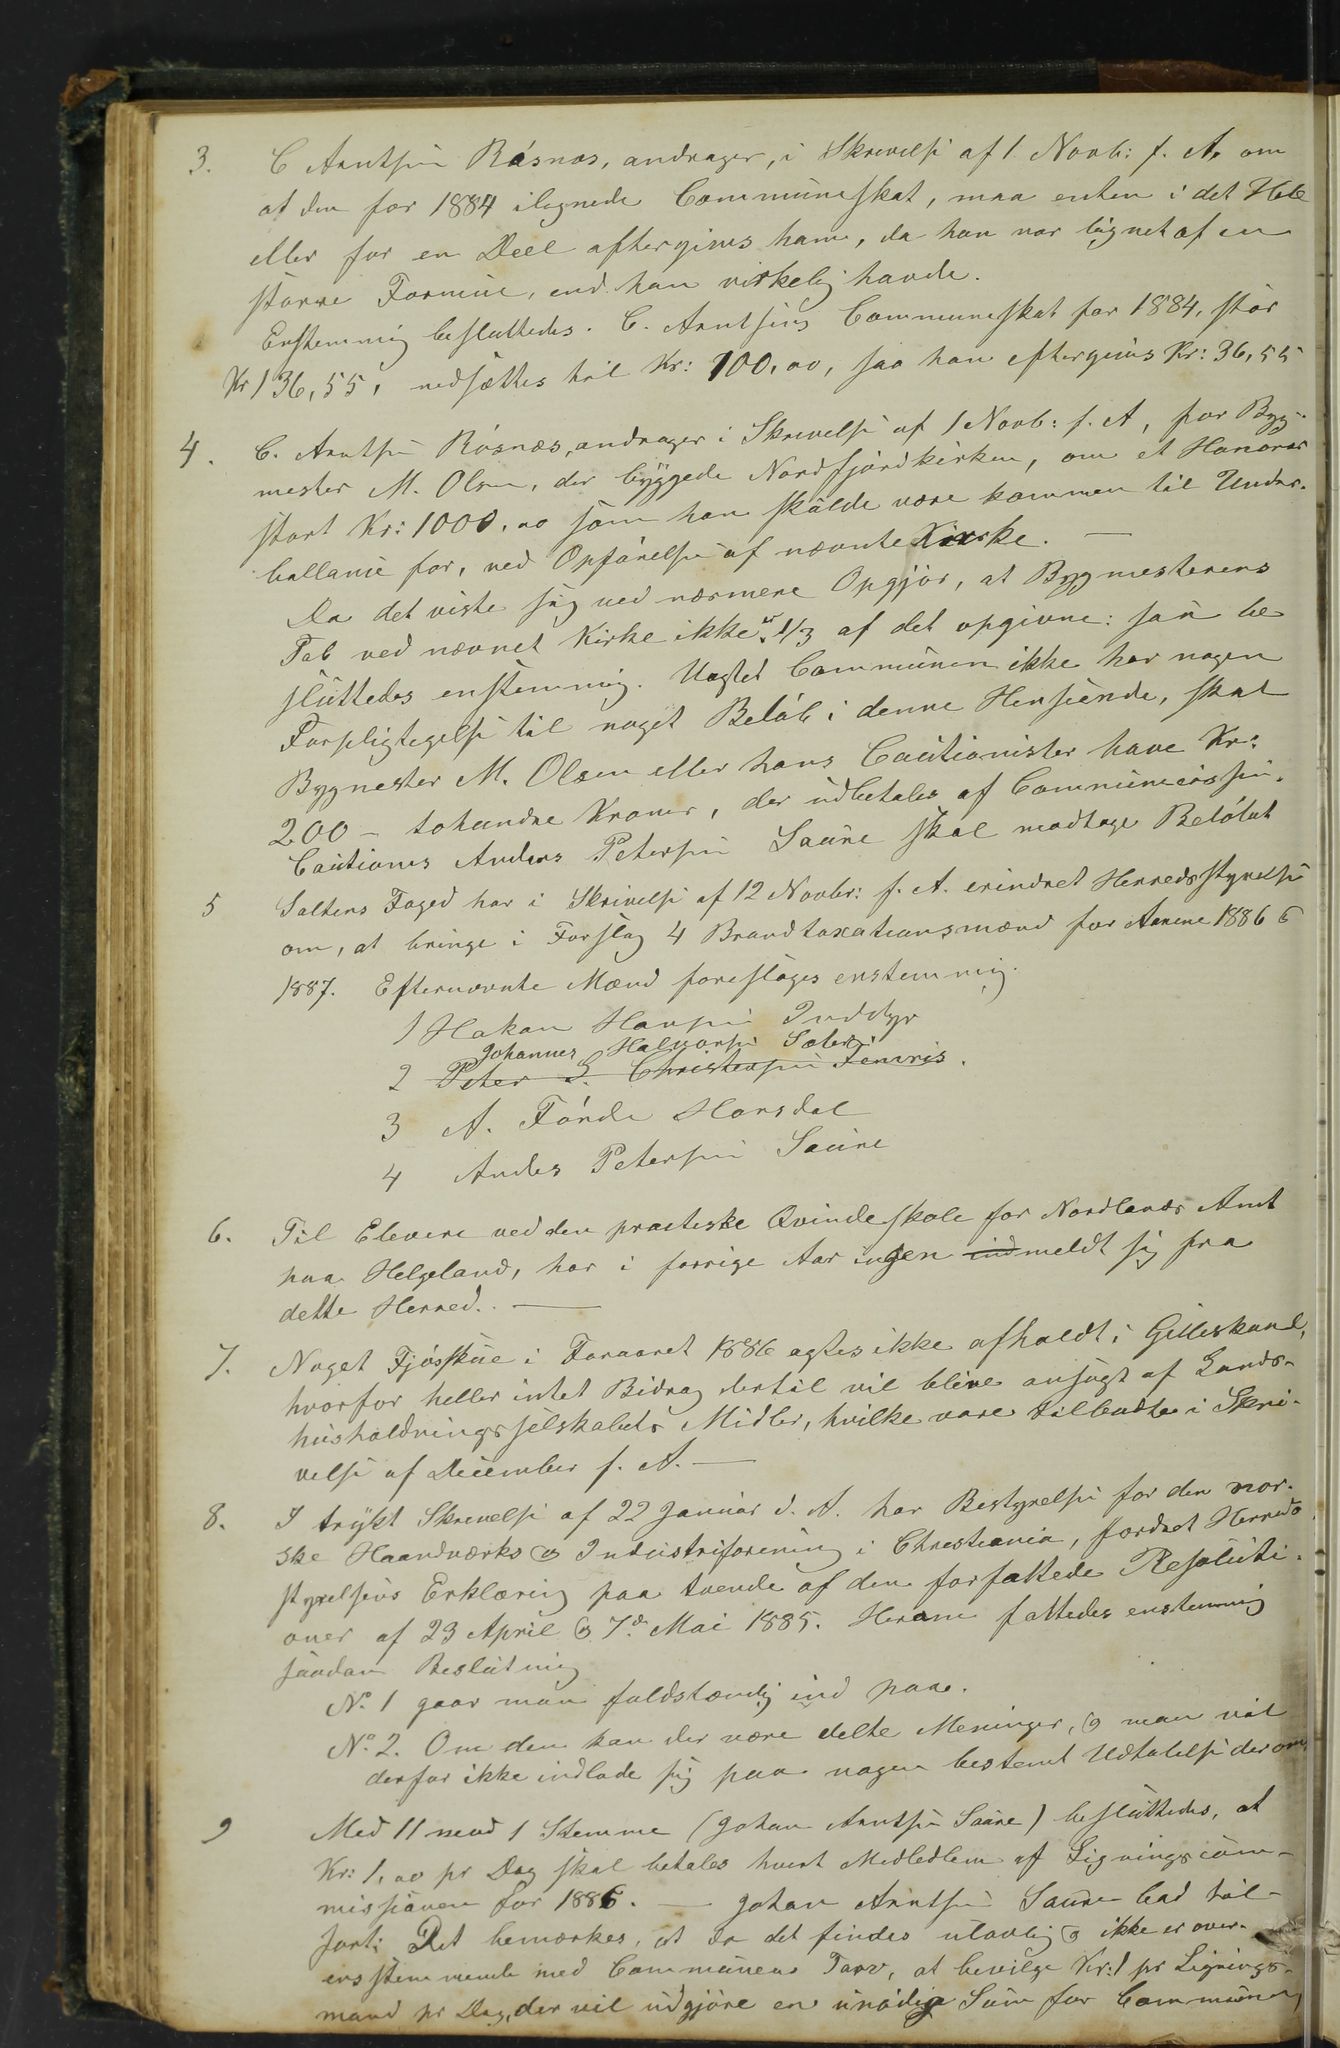 3. C Arntsen Rósnæs, andrager, i Skrivelse af 1 Novb: f. A. om
at den for 1884 ilignede Communeskat, maa enten i det Hele
eller for en Deel eftergives ham, da han var lignet af en
større Formue, end han virkelig havde.
Enstemmig besluttedes. C. Arntsens Communeskat for 1884, stór
Kr 136,55, nedsættes til Kr: 100,00, saa han eftergives Kr: 36,55
4. C. Arntsen Rósnæs, andrager i Skrivelse af 1 Novb: f. A, for Byg-
mester M. Olsen, der byggede Nordfjordkirken, om et Honorar
stort Kr: 1000,00 som han skulde være kommen til Under-
ballance for, ved Opførelse af nævnte Kirke. —
Da det viste sig ved nærmere Opgjør, at Bygmesterens
Tab ved nævnet Kirke ikke er 1/3 af det opgivne: saa be
sluttedes enstemmig. Uagtet Communen ikke har nogen
Forpligtegelse til noget Beløb i denne Henseende, skal
Bygmester M. Olsen eller hans Cautionister have Kr:
200 - tohundre Kroner, der udbetales af Communecassen.
Cautiones Anders Petersen Saure skal modtage Beløbet
5 Saltens Foged har i Skrivelse af 12 Novbr: f. A. erindret Herredsstyrelse
om, at bringe i Forslag 4 Brandtaxationsmænd for Aarene 1886 &
1887. Efternævnte Mænd foreslages enstemmig.
1 Hakon Hansen Inddyr
Johannes Halvorsen Sæter
2 Peter S. Christensen Fenvris.
3 A. Førde Horsdal
4 Andes Petersen Saure
6. Til Elever ved den practiske Qvindeskole for Nordlands Amt
paa Helgeland, har i forrige Aar ingen indmeldt sig fra
dette Herred. —
7. Noget Fjøsskue i Foraaret 1886 agtes ikke afholdt i Gilleskaal,
hvorfor heller intet Bidrag dertil vil blive ansøgt af Lands-
husholdningsselskabets Midler, hvilke vare tilbudte i Skri-
velse af December f. A. —
8. I trykt Skrivelse af 22 Januar d. A. har Bestyrelsen for den nor-
ske Haandværks & Industriforening i Christiania, fordret Herreds
styrelsens Erklæring paa tvende af den forfattede Resoluti-
oner af 23 April & 7de Mai 1885. Herom fattedes enstemmig
saadan Beslutning
No 1 gaar man fuldstændig ind paa.
No 2. Om den kan der være delte Meninger, & man vil
derfor ikke indlade sig paa nogen bestemt Udtalelse derom,
9 Med 11 mod 1 Stemme (Johan Arntsen Saure) besluttedes, at
Kr: 1,00 pr Dag skal betales hvert Medledlem af Ligningscom-
missionen for 1886. — Johan Arntsen Saure bad til-
ført: Det bemærkes, at da det findes ulovlig & ikke er over-
ensstemmende med Communens Tarv, at bevilge Kr: 1 pr Lignings-
mand pr Dag, der vil udgjøre en unødig Sum for Communen,